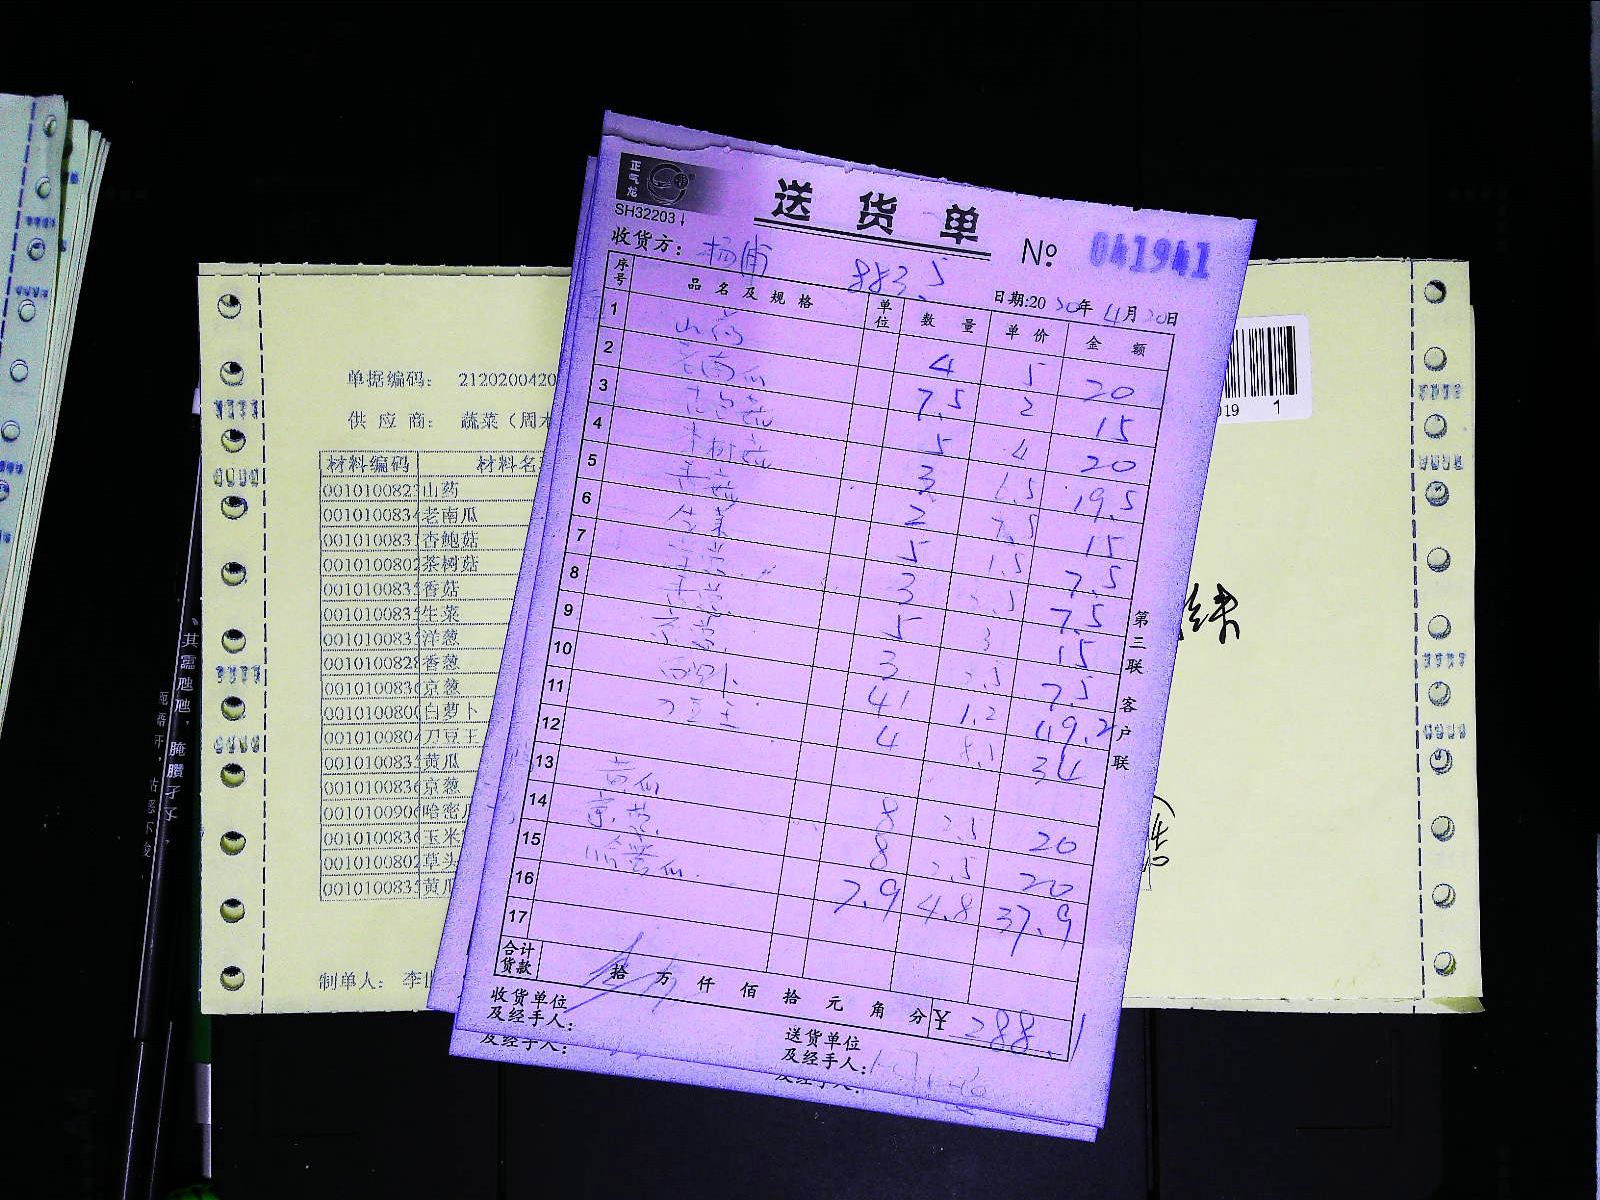 正气龙
SH32203
送货单
№ 041941
收货方： 杨浦
883.5
日期:2020年4月20日
序号 品名及规格 单位 数量 单价 金额
1 山药 4 5 20
2 老南瓜 7.5 2 15
3 杏包菇 5 4 20
4 茶树菇 3 6.5 19.5
5 香菇 2 7.5 15
6 生菜 5 1.5 7.5
7 洋葱 3 2.5 7.5
8 香葱 5 3 15
9 京葱 3 2.5 7.5
10 白萝卜 41 1.2 49.2
11 刀豆王 4 8.5 34
12
13 黄瓜 8 2.5 20
14 京葱 8 2.5 20
15 哈蜜瓜 7.9 4.8 37.9
16
17
合计货款 拾 万 仟 佰 拾 元 角 分 ¥ 288.1
收货单位
及经手人：
送货单位
及经手人：
及经手人：
及经手人：
第三联 客户联
单据编码： 212020042
供应商： 蔬菜（周
材料编码 材料名
001010082 山药
001010083 老南瓜
001010083 杏鲍菇
001010080 茶树菇
001010083 香菇
001010083 生菜
001010083 洋葱
001010082 香葱
001010083 京葱
001010080 白萝卜
001010080 刀豆王
001010083 黄瓜
001010083 京葱
001010090 哈密
001010083 玉米
001010080 草头
001010083 黄瓜
制单人： 李
919 1